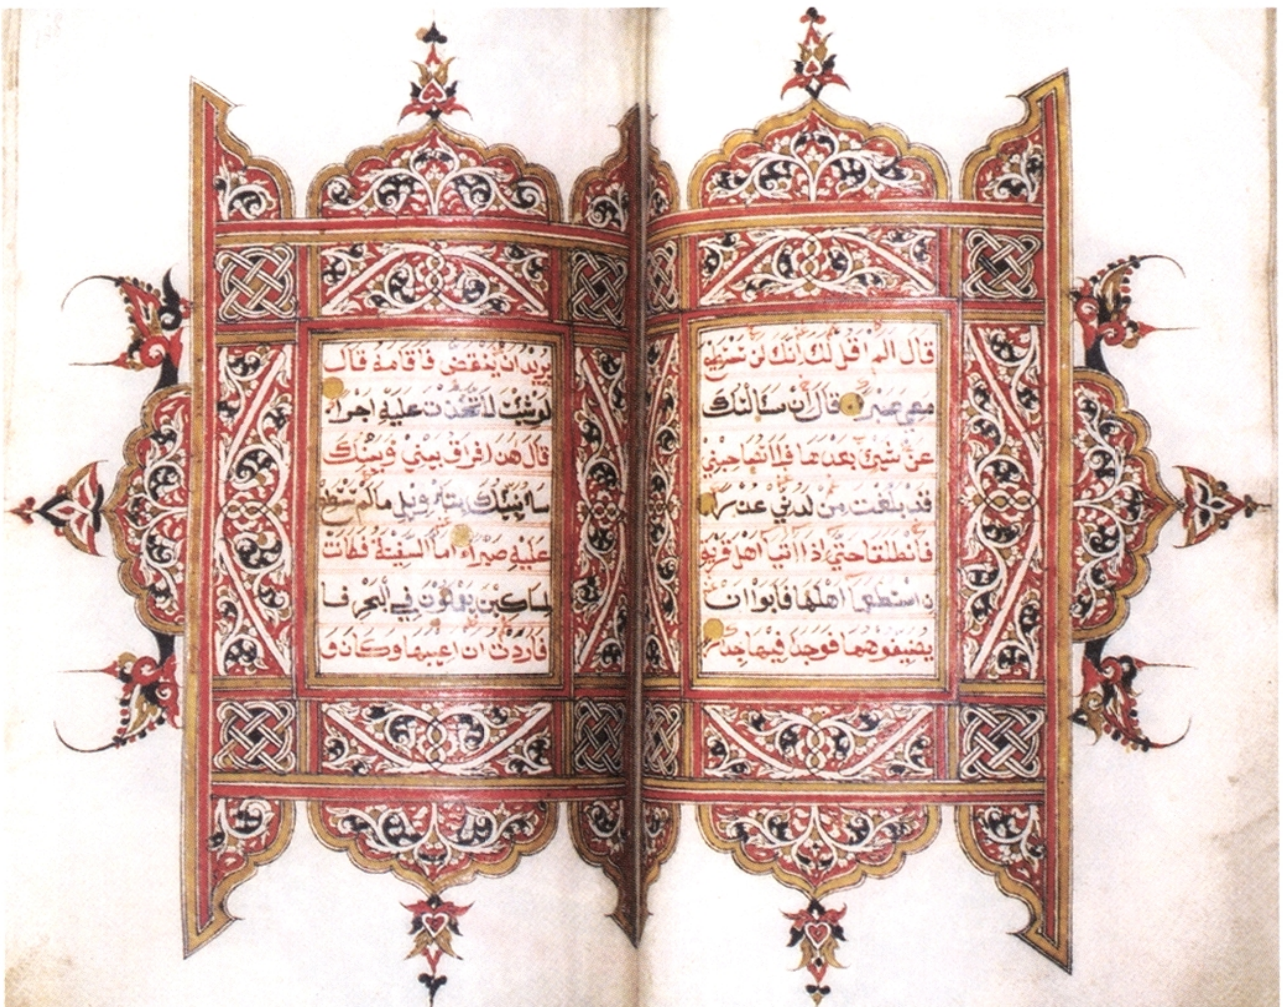 قال الم اقل لك انك لن تستطيع
معي صبرا قال ان سالتك
عن شيء بعدها فلا تصاحبني
قد بلغت من لدني عذرا
فانطلقا حتي اذا اتيا اهل قرية
ن استطعما اهلها فابوا ان
يضيفوهما فوجدا فيها جدارا
يريد ان ينقض فاقامه قال
لوشئت لاتخذت عليه اجرا
قال هذا فراق بيني وبينك
سانبئك بتاويل ما لم تستطع
عليه صبرا اما السفينة فكانت
لمساكين يعملون في البحر فا
فاردت ان اعيبها وكان و